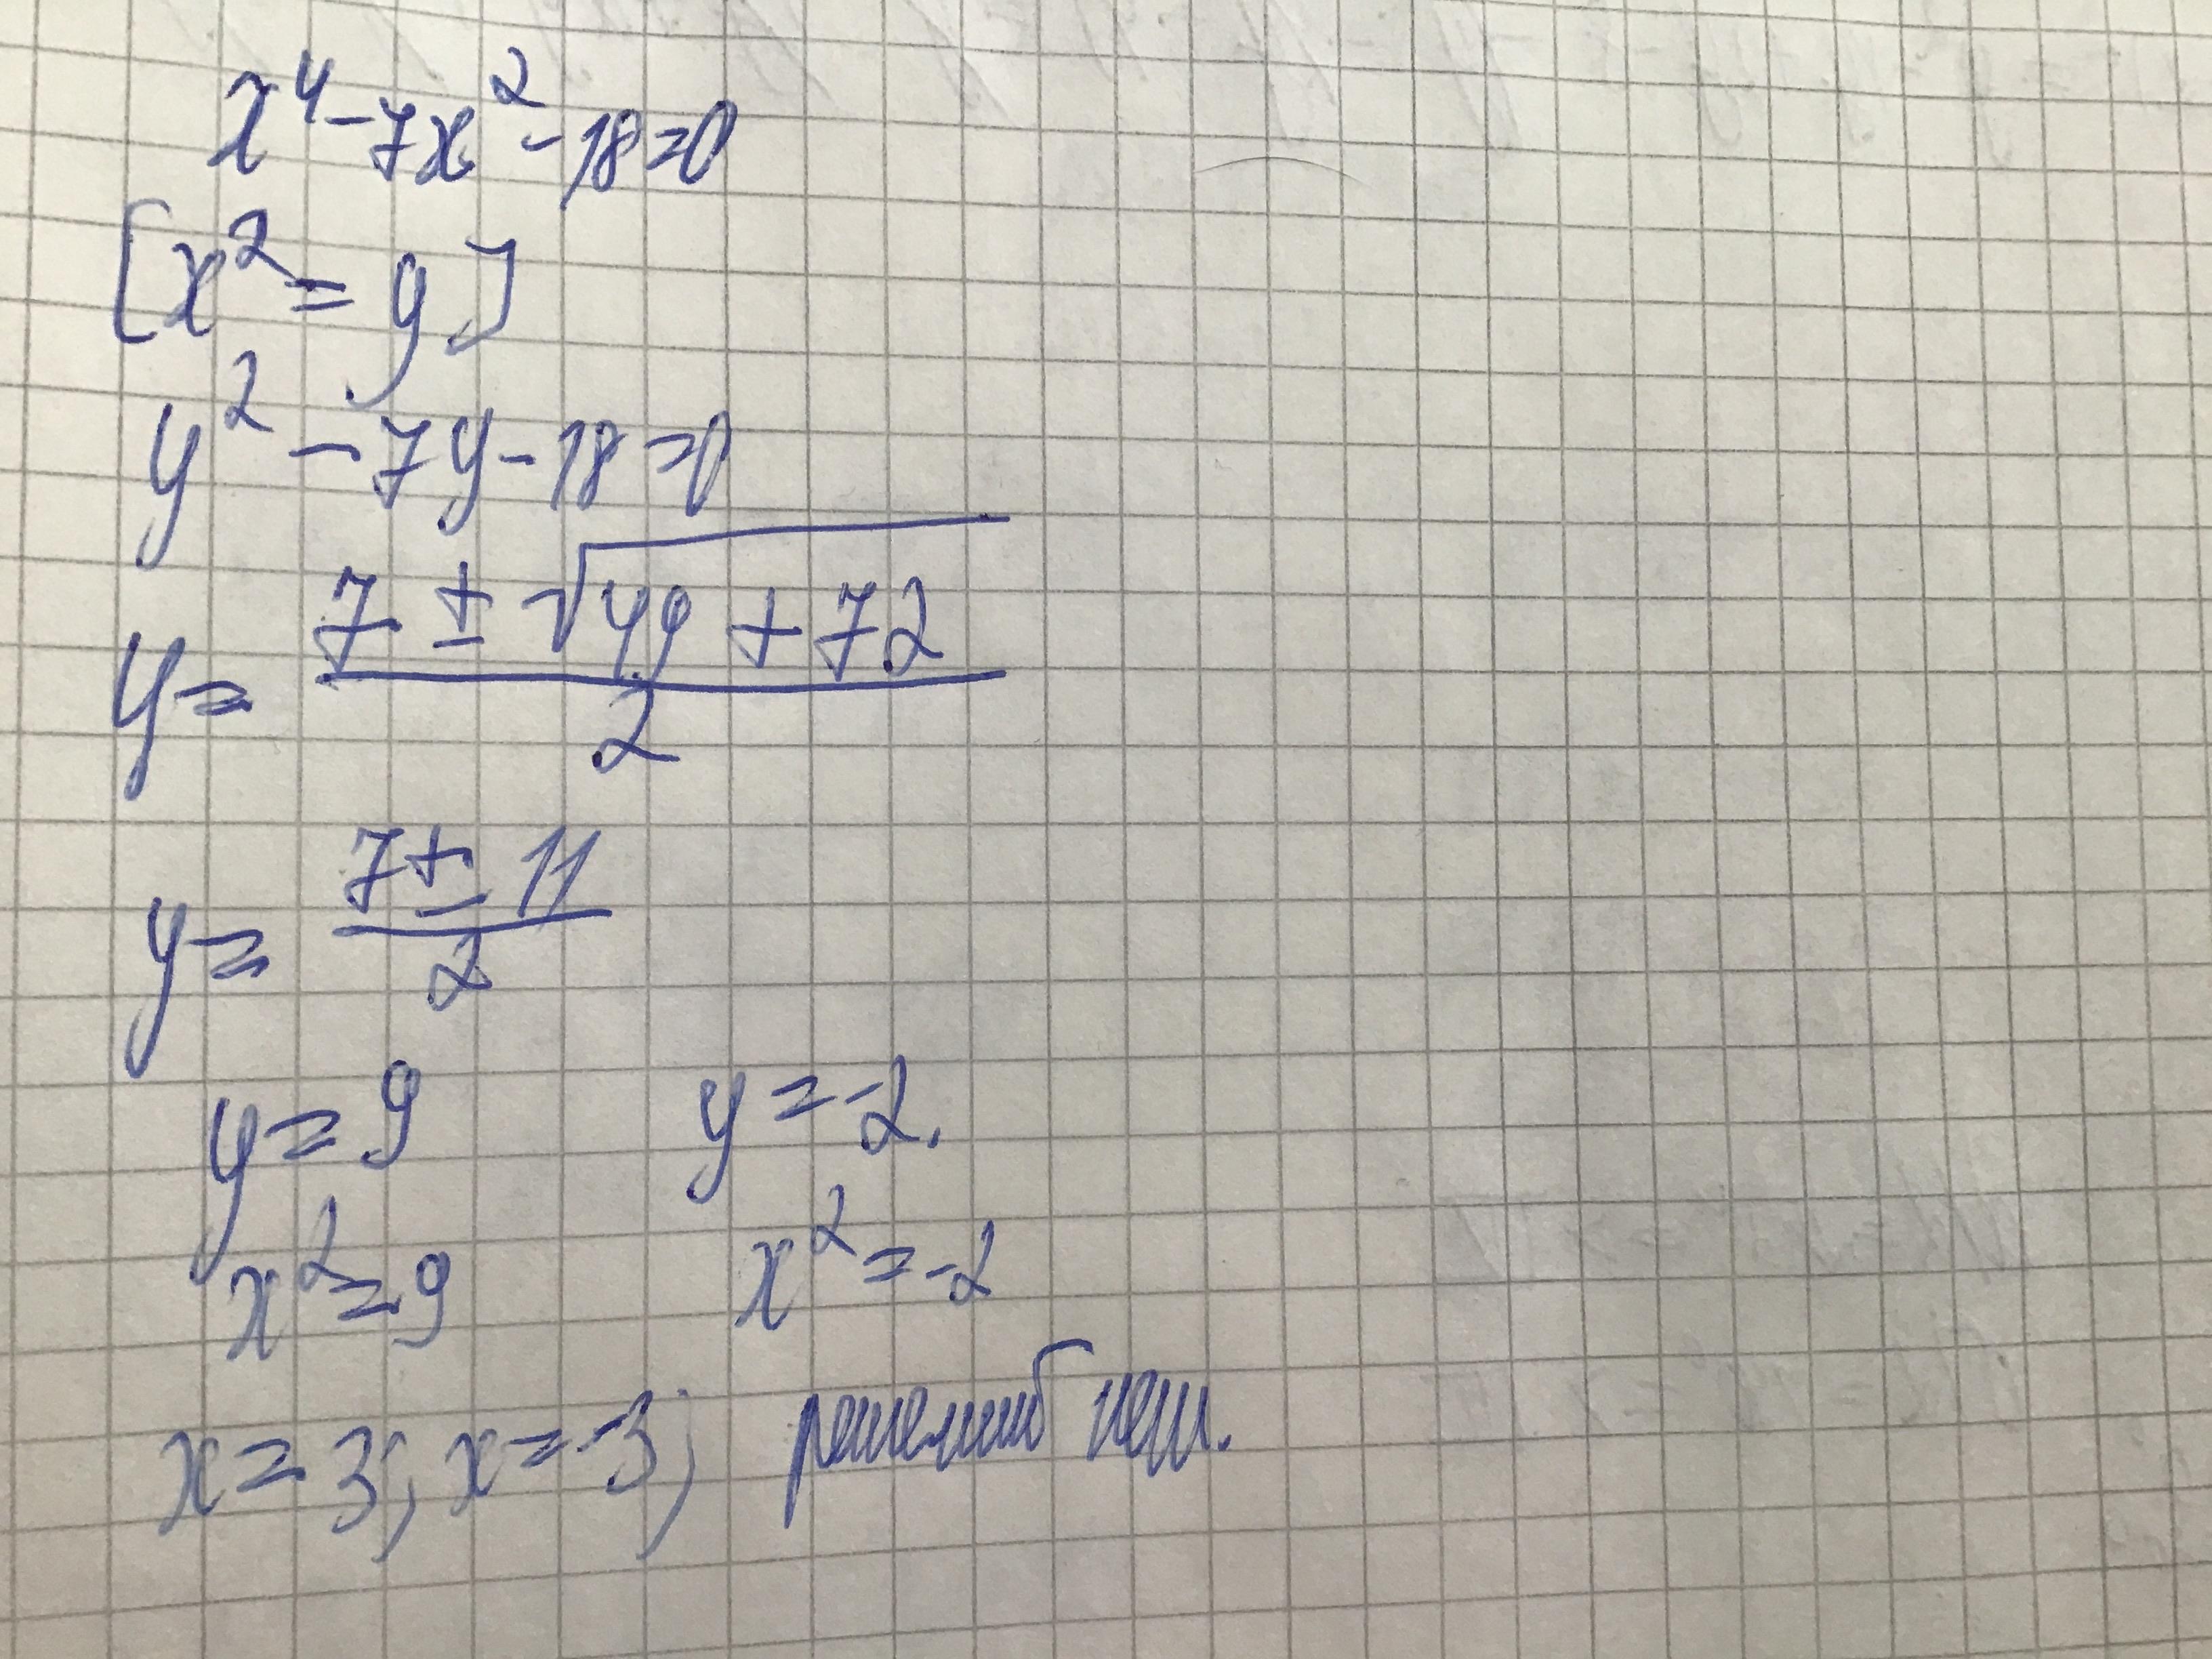 x⁴-7x²-18=0
[x²=y]
y²-7y-18=0
y=(7±√(49+72))/2
y=(7±11)/2
y=9 y=-2.
x²=9 x²=-2
x=3; x=-3; решений нет.